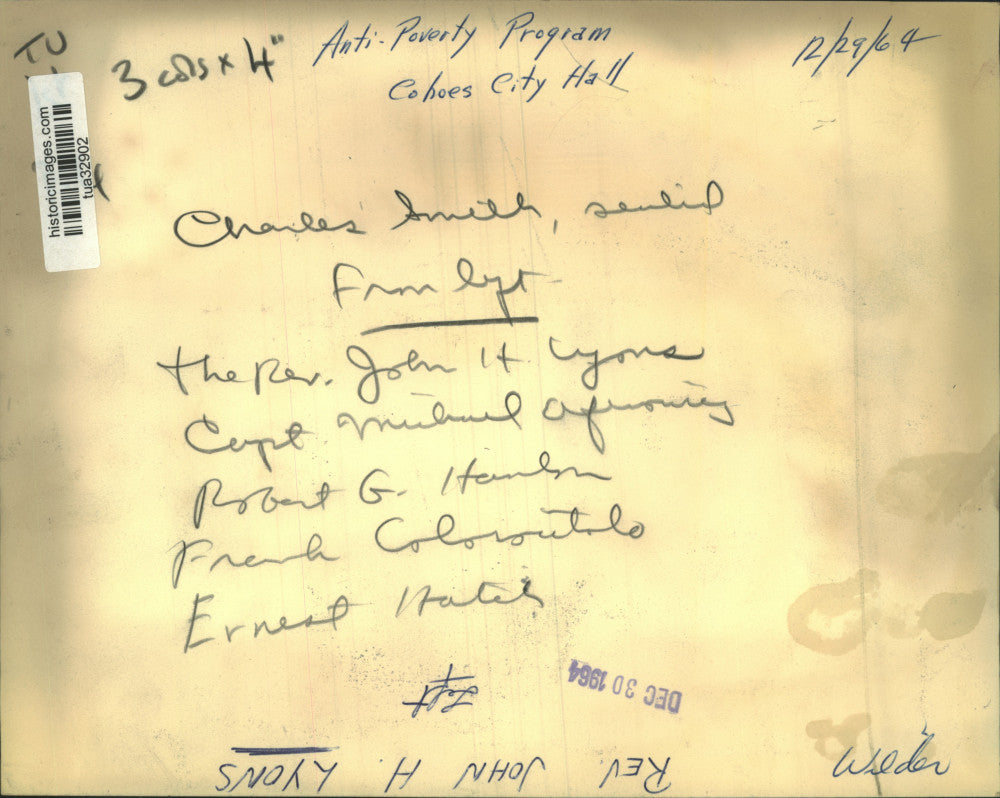 TU
3 cols x 4"
Anti-Poverty Program
Cohoes City Hall
12/29/64
historicimages.com
tua32902
Charles Smith, seated
From left
The Rev. John H. Lyons
Capt Michael
Robert G. Hanlon
Frank Colorutolo
Ernest Hatch
DEC 30 1964
Left
REV. JOHN H. LYONS
Wilder